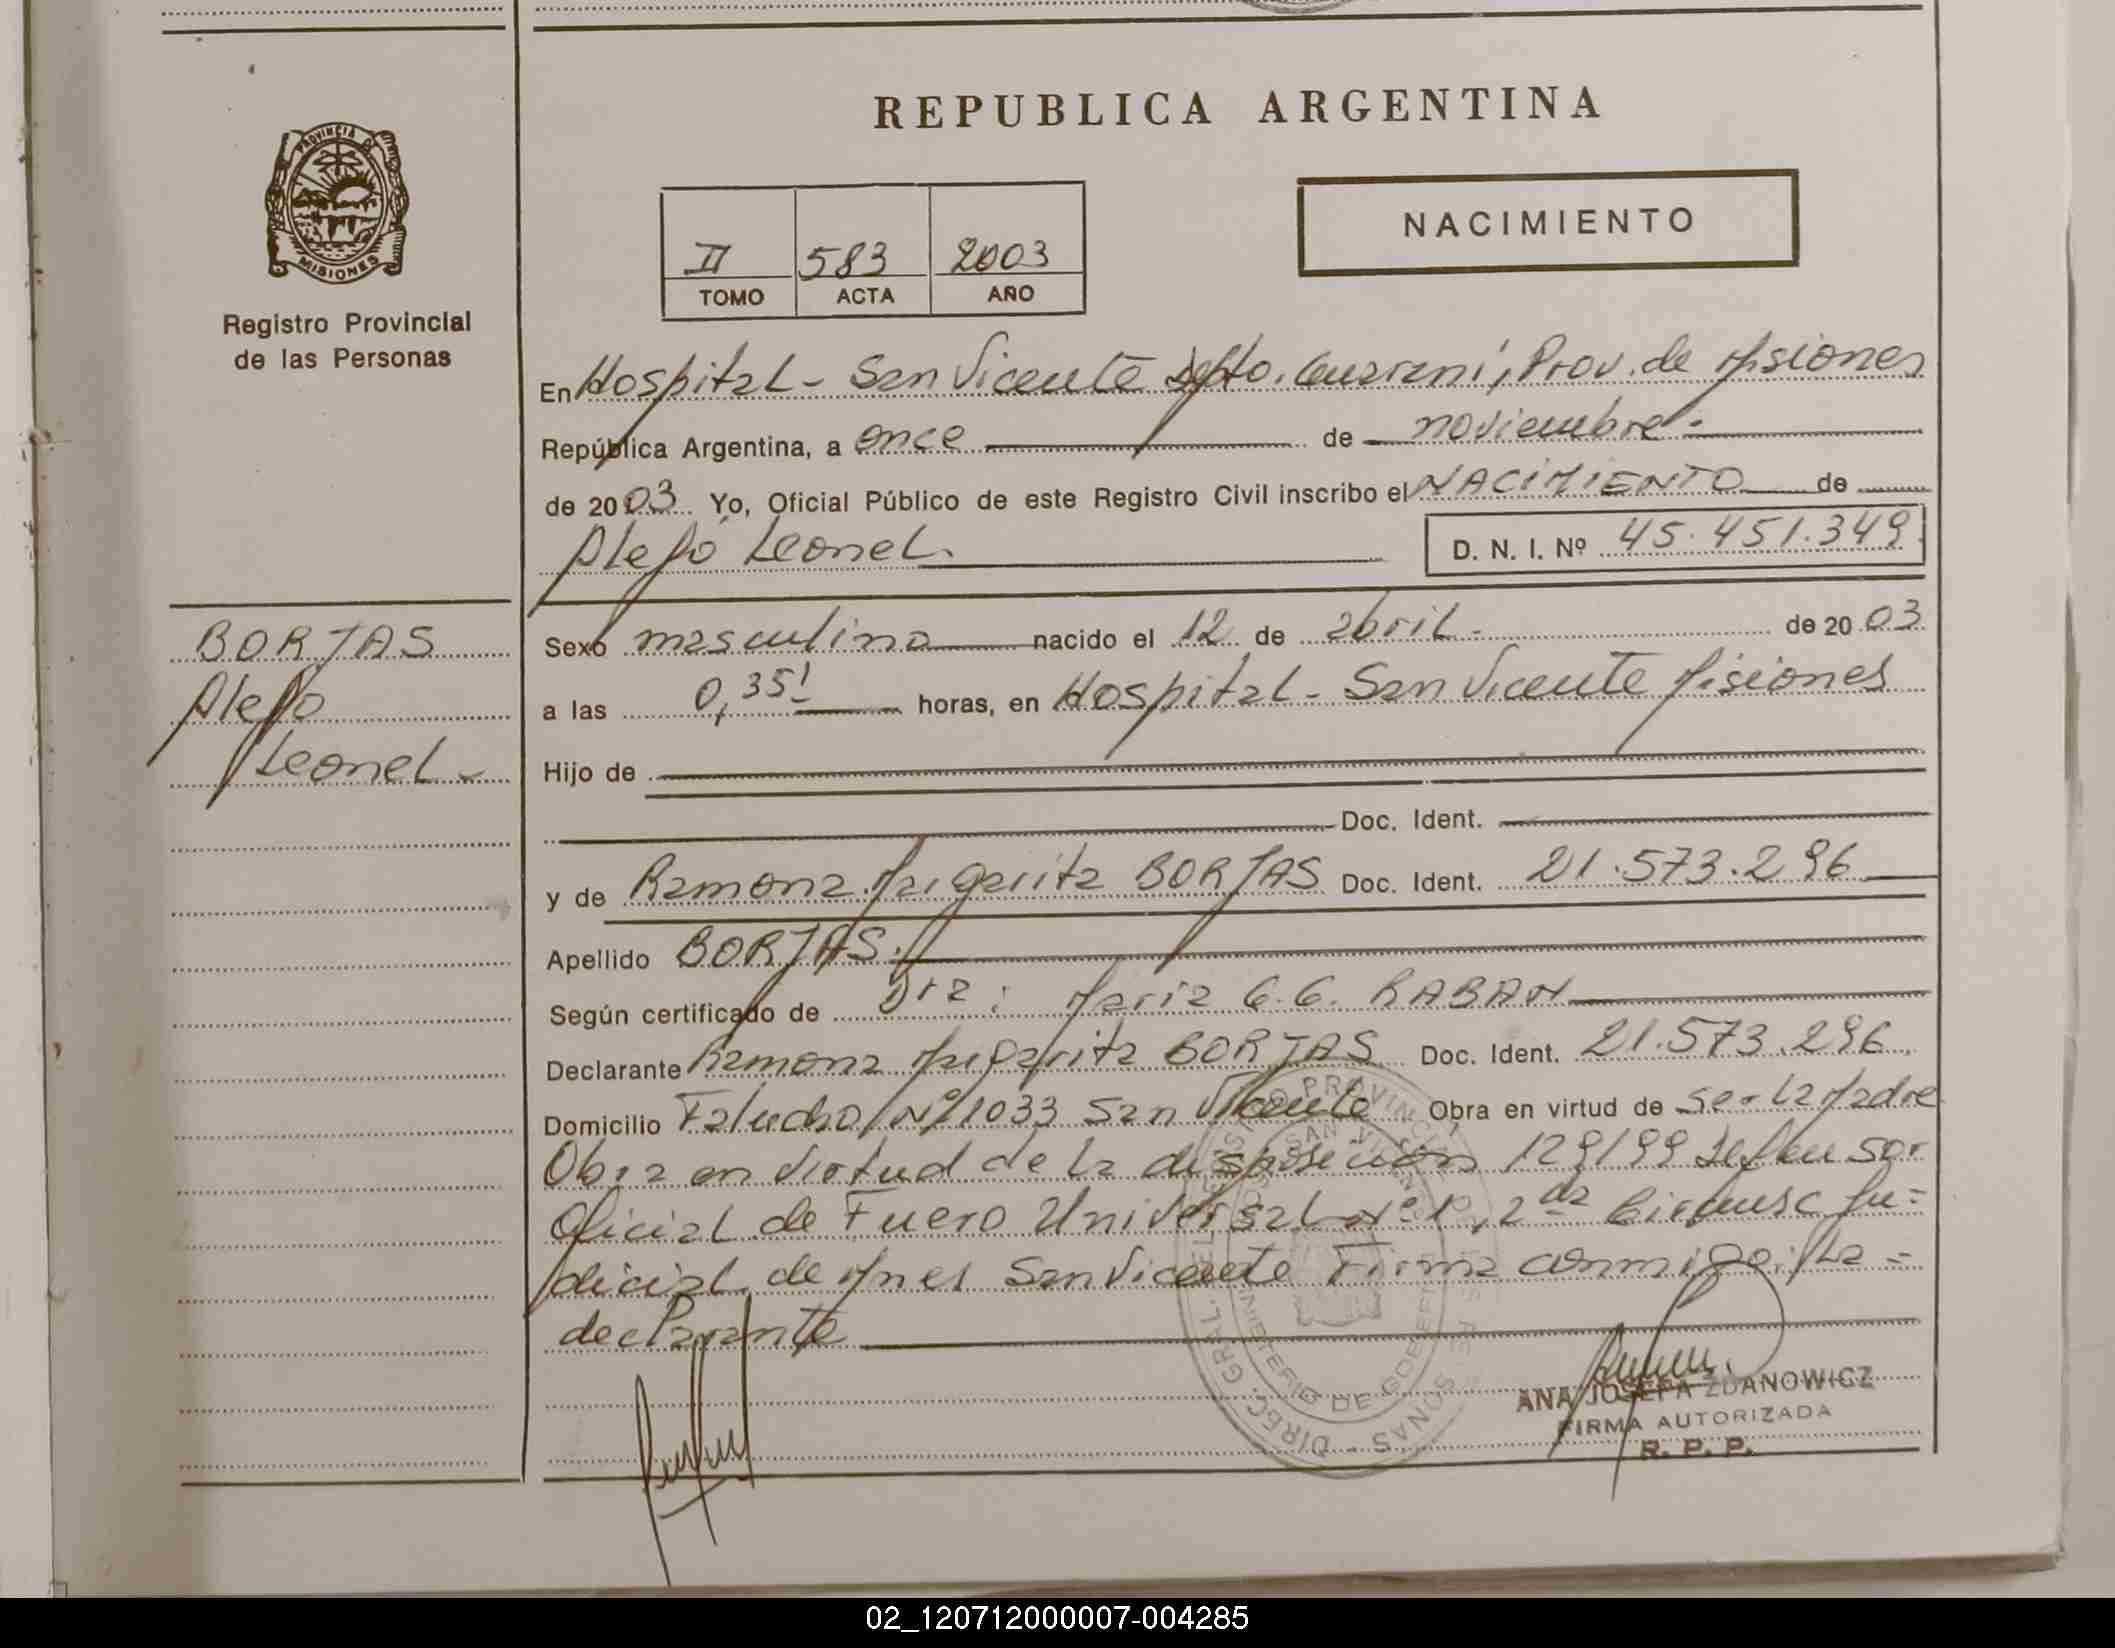 REPUBLICA ARGENTINA
PROVINCIA DE
MISIONES
Registro Provincial
de las Personas
II 583 2003
TOMO ACTA AÑO
NACIMIENTO
En Hospital - San Vicente Dpto. Guarani, Prov. de Misiones
República Argentina, a once de noviembre -
de 2003 Yo, Oficial Público de este Registro Civil inscribo el NACIMIENTO de
Alejo Leonel.
D. N. I. Nº 45.451.349
BORJAS
Alejo
Leonel -
Sexo masculino nacido el 12 de abril - de 2003
a las 0,35' horas, en Hospital - San Vicente Misiones
Hijo de
Doc. Ident.
y de Ramona Margarita BORJAS Doc. Ident. 21.573.296
Apellido BORJAS.
Según certificado de Dra: Maria G.G. RABAN
Declarante Ramona Margarita BORJAS Doc. Ident. 21.573.296
Domicilio Falucho Nº 1033 San Vicente Obra en virtud de ser la Madre
Obra en virtud de la disposición 129/99 Defensor
Oficial de Fuero Universal Nº 1, 2da Circunsc Ju=
dicial de Mnes San Vicente Firma conmigo: la =
declarante
ANA JOSEFA ZDANOWICZ
FIRMA AUTORIZADA
R. P. P.
02_120712000007-004285